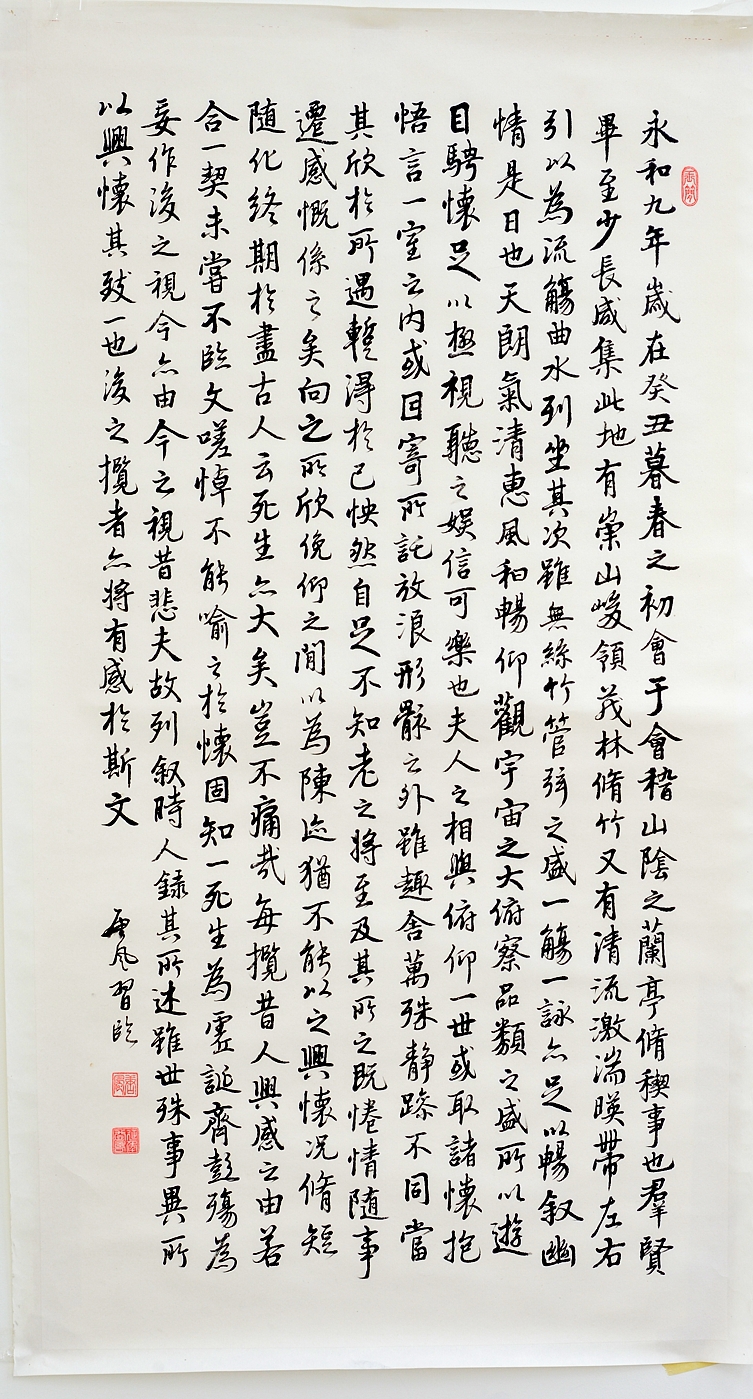 永和九年歲在癸丑暮春之初會于會稽山陰之蘭亭脩稧事也羣賢
畢至少長咸集此地有崇山峻領茂林脩竹又有清流激湍暎帶左右
引以為流觴曲水列坐其次雖無絲竹管弦之盛一觴一詠亦足以暢叙幽
情是日也天朗氣清惠風和暢仰觀宇宙之大俯察品類之盛所以遊
目騁懷足以極視聽之娛信可樂也夫人之相與俯仰一世或取諸懷抱
悟言一室之内或因寄所託放浪形骸之外雖趣舍萬殊静躁不同當
其欣於所遇蹔得於己怏然自足不知老之將至及其所之既惓情随事
遷感慨係之矣向之所欣俛仰之閒以為陳迹猶不能以之興懷况脩短
随化終期於盡古人云死生亦大矣豈不痛哉每攬昔人興感之由若
合一契未嘗不臨文嗟悼不能喻之於懷固知一死生為虛誕齊彭殤為
妄作後之視今亦由今之視昔悲夫故列叙時人録其所述雖世殊事異所
以興懷其致一也後之攬者亦將有感於斯文
风習臨